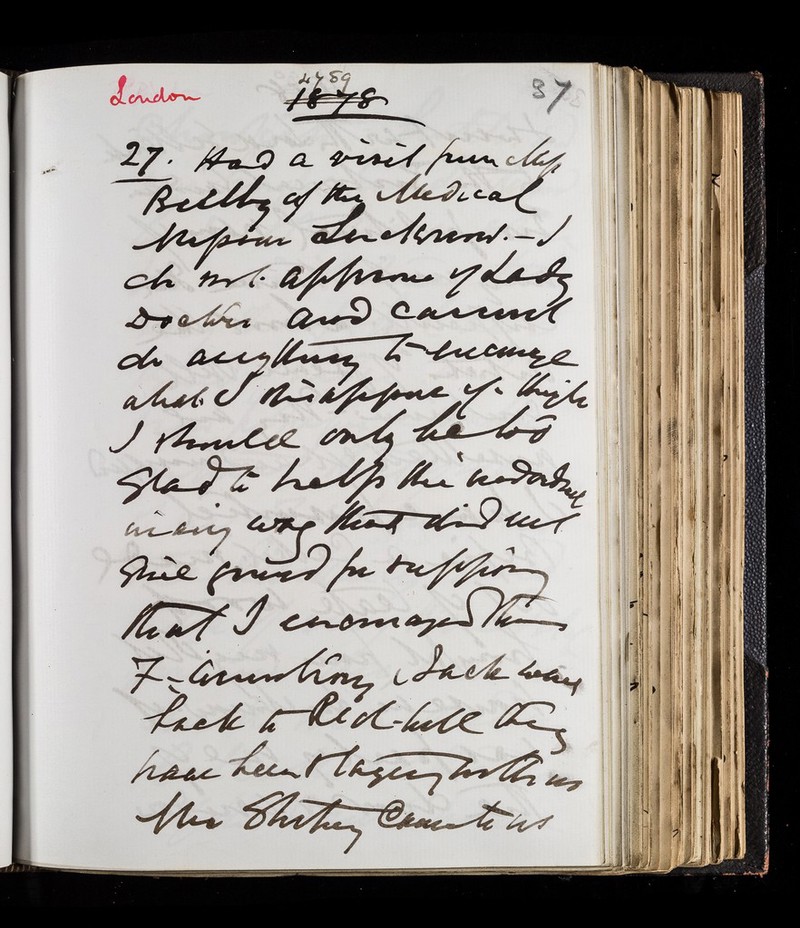 London
4789
1878
37
27. Had a visit from Miss
Beilby of the Medical
Mission Lucknow. - I
do not approve of Lady
Doctors and cannot
do anything to encourage
what I disapprove of. though
I should only be too
glad to help the individual
in any way that did not
give ground for supposing
that I encouraged them
7- Jack went
back to Red-hill they
have been staying with us
Mrs Came to us